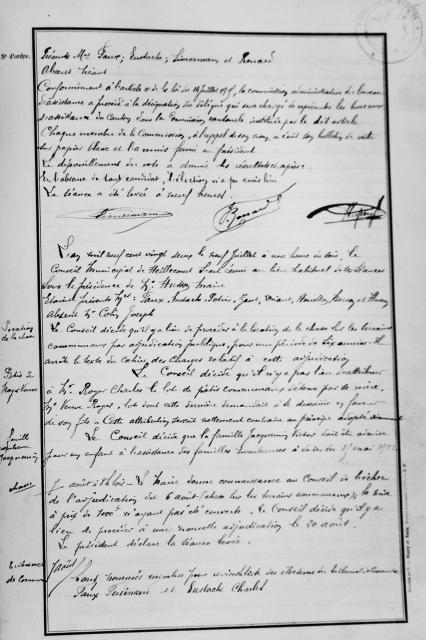 N° d'ordre.
Présents Mrs Faux; Eustache; Simermann et Renard
Absent néant
Conformément à l'article 11 de la loi du 14 Juillet 19, la commission administrative du bureau
d'assistance a procédé à la désignation du délégué qui sera chargé de représenter les bureaux
d'assistance du Canton dans la Commission cantonale instituée par le dit article
Chaque membre de la Commission, à l'appel de son nom, a écrit son bulletin de vote
sur papier blanc et l'a remis fermé au président
Le dépouillement du vote a donné les résultats ci-après:
En l'absence de tout candidat, l'élection n'a pu avoir lieu
La séance a été levée à neuf heures.
L'an mil neuf cent vingt deux le neuf Juillet à une heure du soir, le
Conseil Municipal de s'est réuni au lieu habituel de ses séances
sous la présidence de Mr Husson Maire
Etaient présents Mrs: Faux, Eustache
Absent Mr Colin Joseph
Location de la chasse
Le Conseil décide qu'il y a lieu de procéder à la location de la chasse sur les terrains
communaux par adjudication publique, pour une période de six années. Il
arrête le texte du Cahier des Charges relatif à cette adjudication
Patis
Le Conseil décide qu'il n'y a pas lieu d'attribuer
à Mr Royer Charles le lot de patis communaux détenu par sa mère,
Mme Veuve Royer, lot dont cette dernière demandait à se démettre en faveur
de son fils. Cette attribution serait nettement contraire au principe adopté
Famille
Jacquemin
Le Conseil décide que la famille Jacquemin Victor soit admise
pour un enfant à l'assistance des familles nombreuses à dater du 1er mai 1922
chasse
7 août à - Le Maire donne connaissance au Conseil de l'échec
de l'adjudication du 6 août (chasse sur les terrains communaux), la mise
à prix de 1000f n'ayant pas été couverte. Le Conseil décide qu'il y a
lieu de procéder à une nouvelle adjudication le 20 août.
Le président déclare la séance levée.
Tribunal
de Commerce
7 août
Sont nommés membres pour révision liste des électeurs du tribunal de Commerce
Faux et Eustache Charles